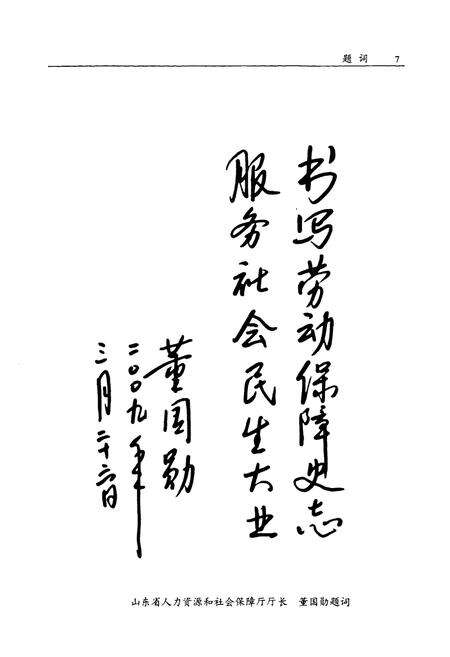 题词 7
书写劳动保障史志
服务社会民生大业
董国勋
二〇〇九年
三月二十六日
山东省人力资源和社会保障厅厅长 董国勋题词